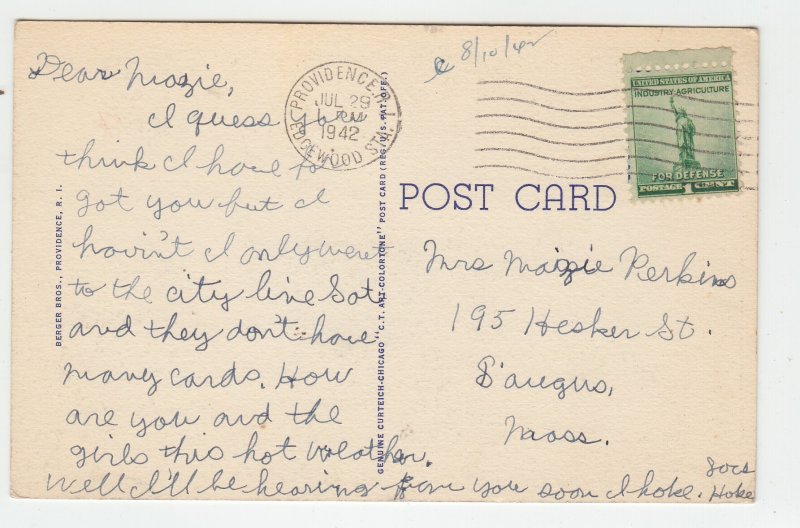 Dear Mazie,
I guess you
think I have fo
got you but I
havin't I only went
to the city line Sat
and they don't have
many cards. How
are you and the
girls this hot weather.
Well I'll be hearing from you soon I hoke.
Hoke
8/10/42
PROVIDENCE, R.I.
JUL 29
PM
1942
EDGEWOOD STA.
UNITED STATES OF AMERICA
INDUSTRY·AGRICULTURE
FOR DEFENSE
POSTAGE 1 CENT
POST CARD
Mrs Maizie Perkins
195 Hesker St.
Saugus,
Mass.
BERGER BROS., PROVIDENCE, R. I.
GENUINE CURTEICH-CHICAGO "C.T. ART-COLORTONE" POST CARD (REG. U.S. PAT. OFF.)